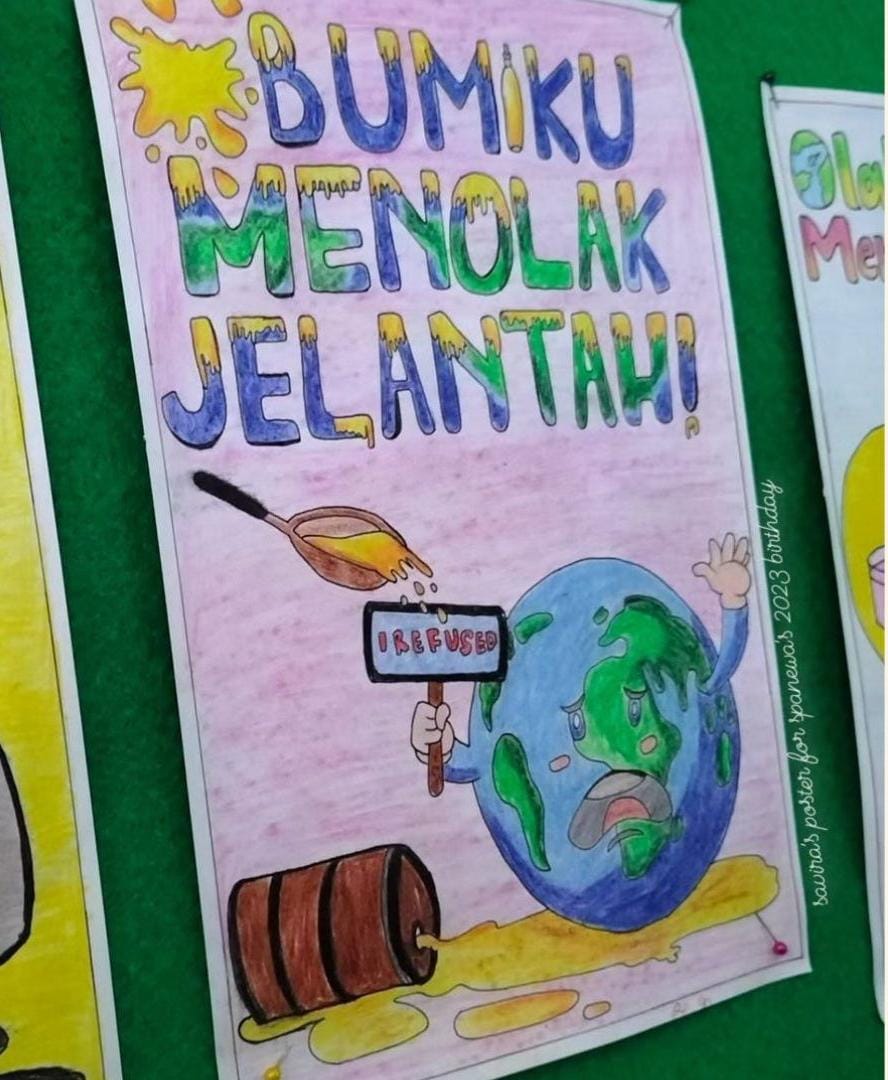 BUMiKU
MENOLAK
JELANTAH!
I REFUSED
savira's poster for spanewa's 2023 birthday
Ola
Mer